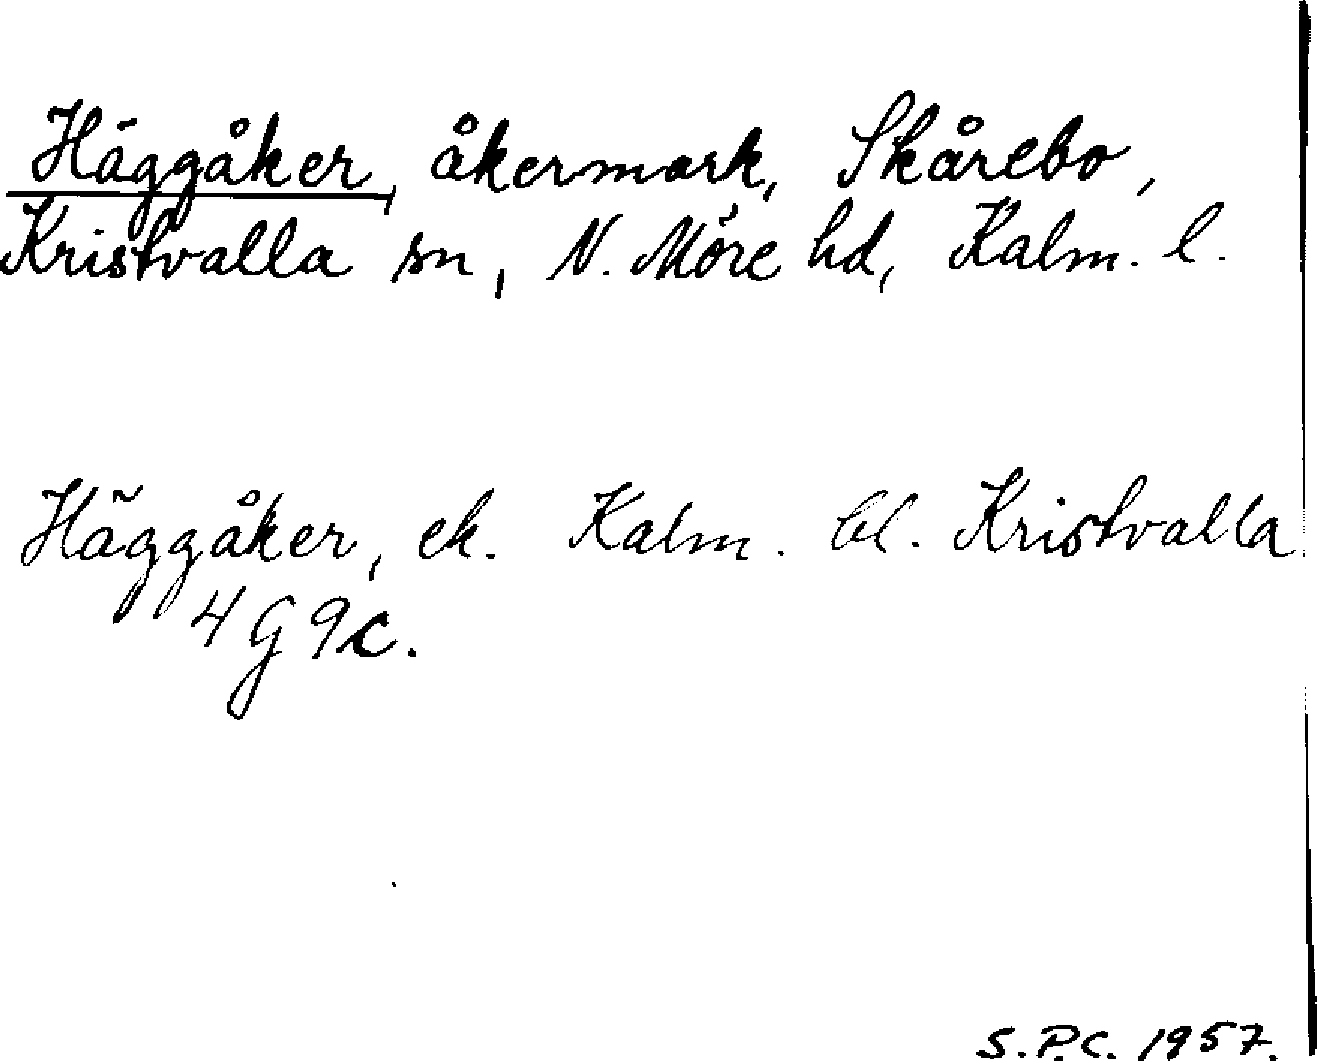 Häggåker, åkermark, Skårebo,
Kristvalla sn, N. Möre hd, Kalm. l.
Häggåker, ek. Kalm. bl. Kristvalla
4 G 9c.
S.P.C. 1957.